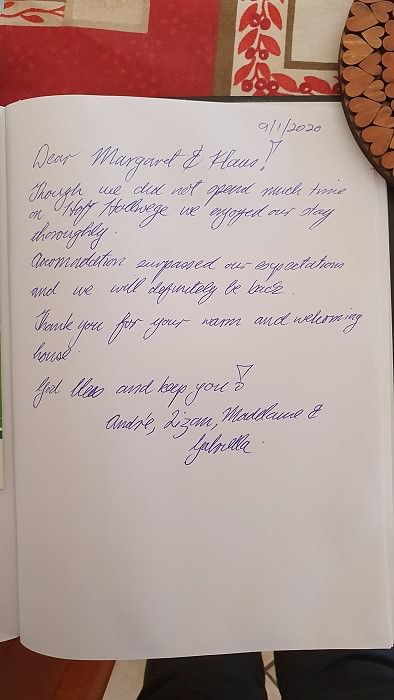 9/1/2020
Dear Margaret & Klaus!
Though we did not spend much time
on Hoff Hollwege we enjoyed our stay
thoroughly.
Acomodation surpassed our expectations
and we will definitely be back.
Thank you for your warm and welcoming
house.
God bless and keep you!
André, Lizan, Madelaine &
Gabriella.